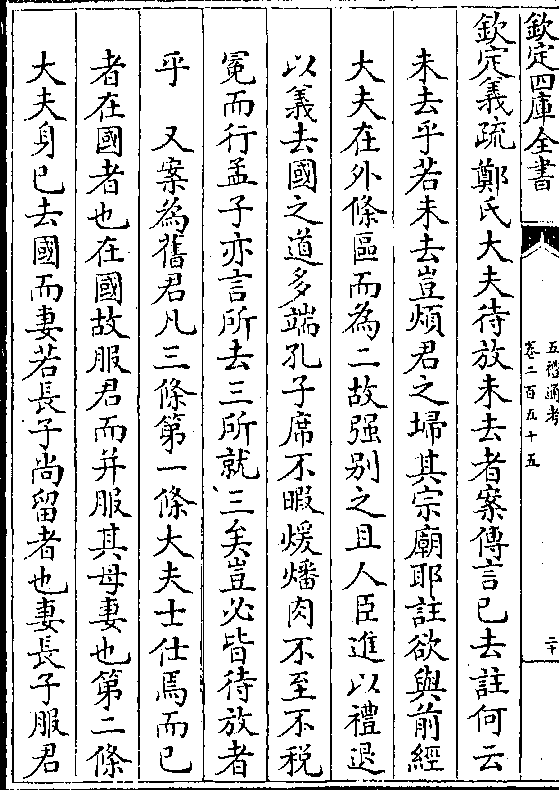 欽定四庫全書
五禮通考
卷二百五十五
二十
欽定義疏鄭氏大夫待放未去者案傳言已去註何云
未去乎若未去豈煩君之埽其宗廟耶註欲與前經
大夫在外條區而為二故强别之且人臣進以禮退
以義去國之道多端孔子席不暇煖燔肉不至不税
冕而行孟子亦言所去三所就三矣豈必皆待放者
乎 又案為舊君凡三條第一條大夫士仕焉而已
者在國者也在國故服君而并服其母妻也第二條
大夫身已去國而妻若長子尚留者也妻長子服君